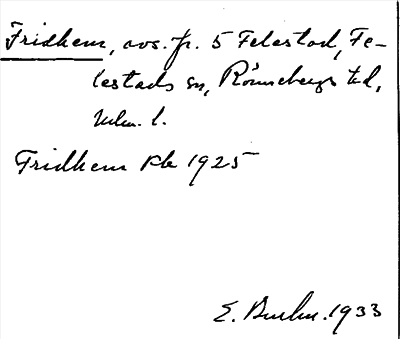 Fridhem, avs. fr. 5 Felestad, Fe-
lestads sn, Rönnebergs hd,
Mlm. l.
Fridhem Kb 1925
E. 1933